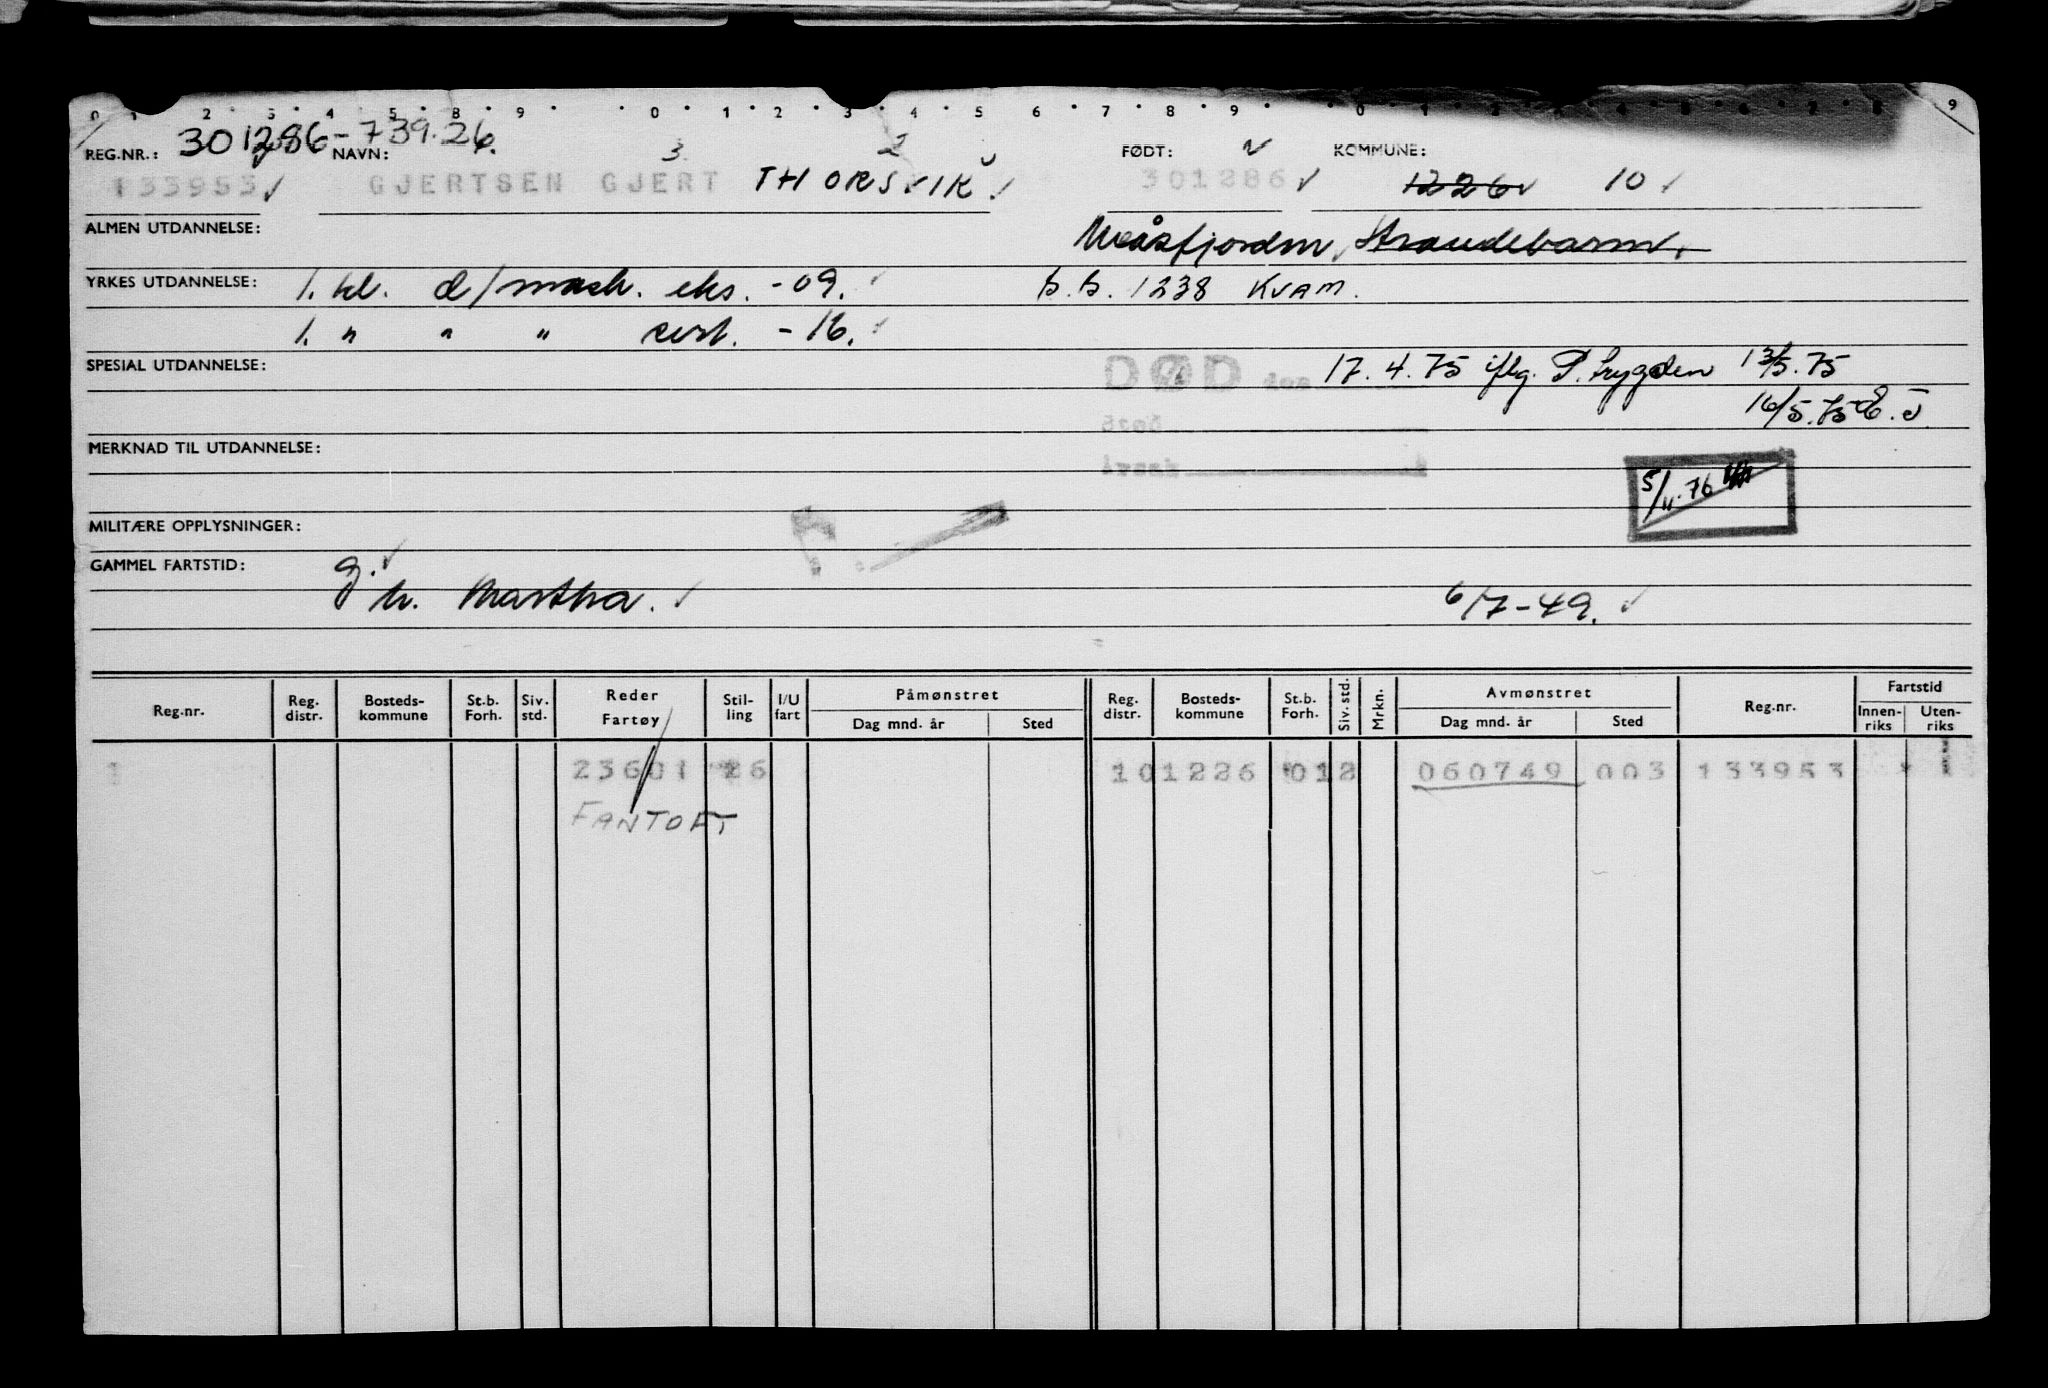 0 1 2 3 4 5 8 9 0 1 2 3 4 5 6 7 8 9 0 1 2 3 4 5 6 7 8 9
REG.NR.: 301286-739.26. NAVN: 3. 2 FØDT: KOMMUNE:
133953 GJERTSEN GJERT THORSVIK. 301286 1226 10
ALMEN UTDANNELSE: Måsfjorden, Strandebarm.
YRKES UTDANNELSE: 1. kl. d/mask. eks. -09. b.b. 1238 KVAM.
1. " " " cert. -16.
SPESIAL UTDANNELSE: DØD den 17.4.75 iflg. P.trygden 13/5.75
Sted 16/5.75 E.J.
MERKNAD TIL UTDANNELSE: Årsak
5/11.76
MILITÆRE OPPLYSNINGER:
GAMMEL FARTSTID: g.
h. Martha. 6/7-49.
Reg.nr. Reg. distr. Bosteds-kommune St.b. Forh. Siv. std. Reder Fartøy Stil-ling I/U fart Påmønstret Dag mnd. år Sted Reg. distr. Bosteds-kommune St.b. Forh. Siv. std. Mrkn. Avmønstret Dag mnd. år Sted Reg.nr. Fartstid Innen-riks Uten-riks
1 23601 26 10 1226 012 060749 003 133953 1
FANTOFT